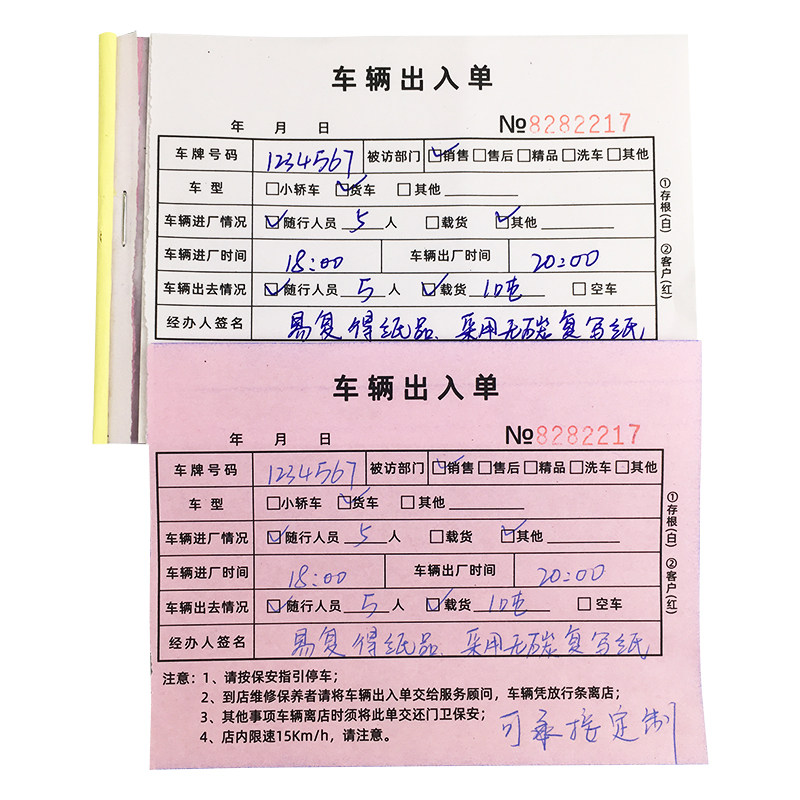 车辆出入单
年 月 日 №8282217
车牌号码 1234567 被访部门 ☑销售 □售后 □精品 □洗车 □其他
车型 □小轿车 ☑货车 □其他
车辆进厂情况 ☑随行人员 5 人 □载货 ☑其他
车辆进厂时间 18:00 车辆出厂时间 20:00
车辆出去情况 ☑随行人员 5 人 ☑载货 10吨 □空车
经办人签名 易复得纸品. 采用无碳复写纸
①存根(白) ②客户(红)
车辆出入单
年 月 日 №8282217
车牌号码 1234567 被访部门 ☑销售 □售后 □精品 □洗车 □其他
车型 □小轿车 ☑货车 □其他
车辆进厂情况 ☑随行人员 5 人 □载货 ☑其他
车辆进厂时间 18:00 车辆出厂时间 20:00
车辆出去情况 ☑随行人员 5 人 ☑载货 10吨 □空车
经办人签名 易复得纸品. 采用无碳复写纸
①存根(白) ②客户(红)
注意：1、请按保安指引停车；
2、到店维修保养者请将车辆出入单交给服务顾问，车辆凭放行条离店；
3、其他事项车辆离店时须将此单交还门卫保安；
4、店内限速15Km/h，请注意。
可承接定制